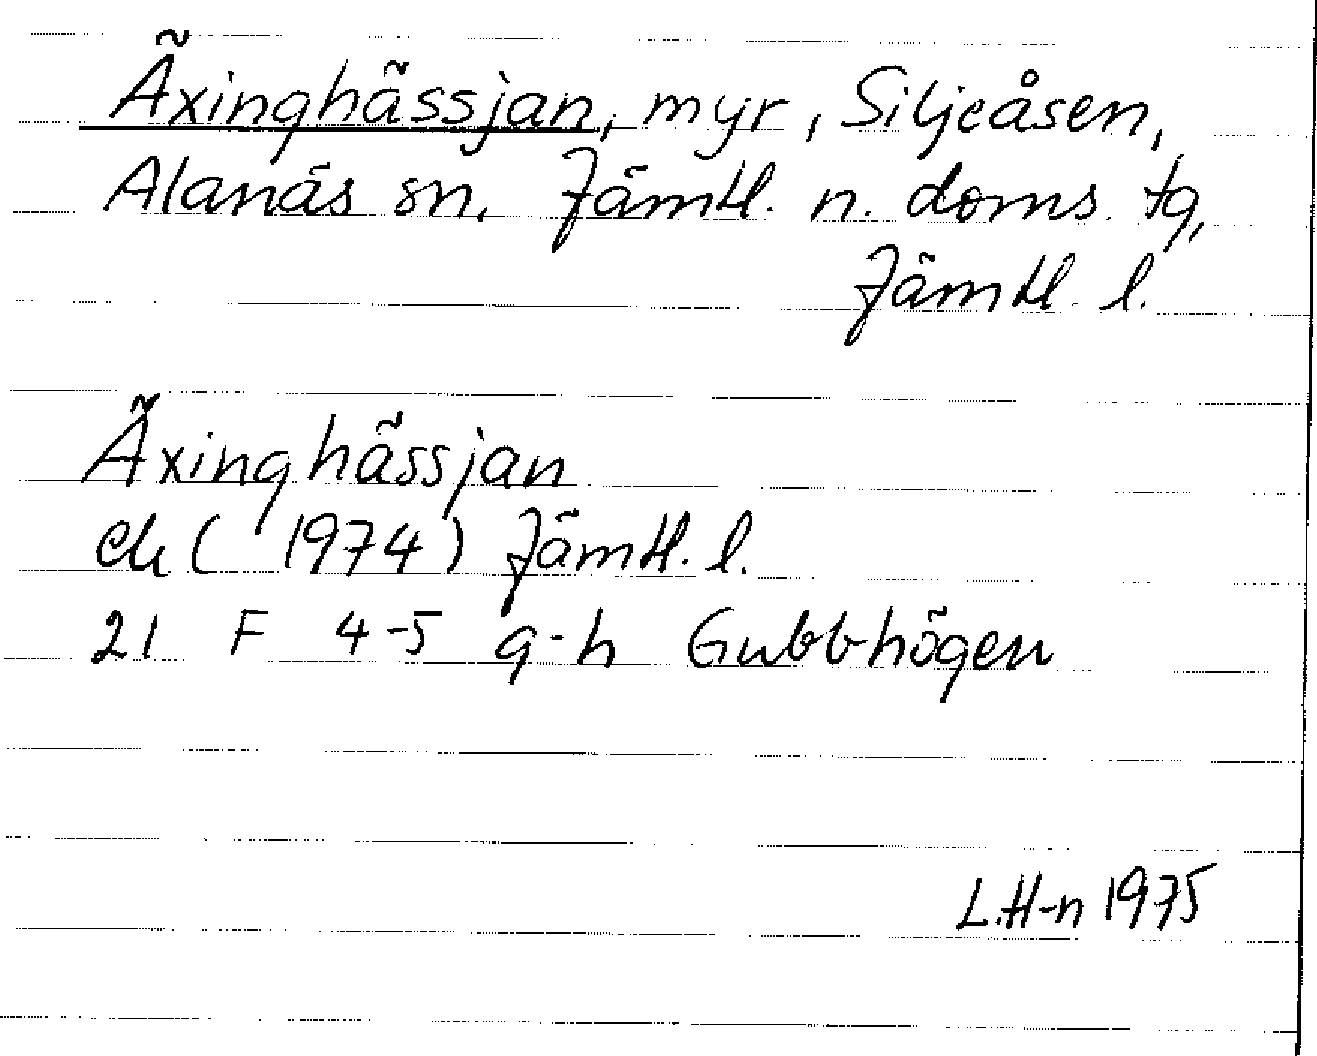 Äxinghässjan, myr, Siljeåsen,
Alanäs sn, Jämtl. n. doms. tg,
Jämtl. l.
Äxinghässjan
ek ( 1974) Jämtl. l.
21 F 4-5 g-h Gubbhögen
L.H-n 1975